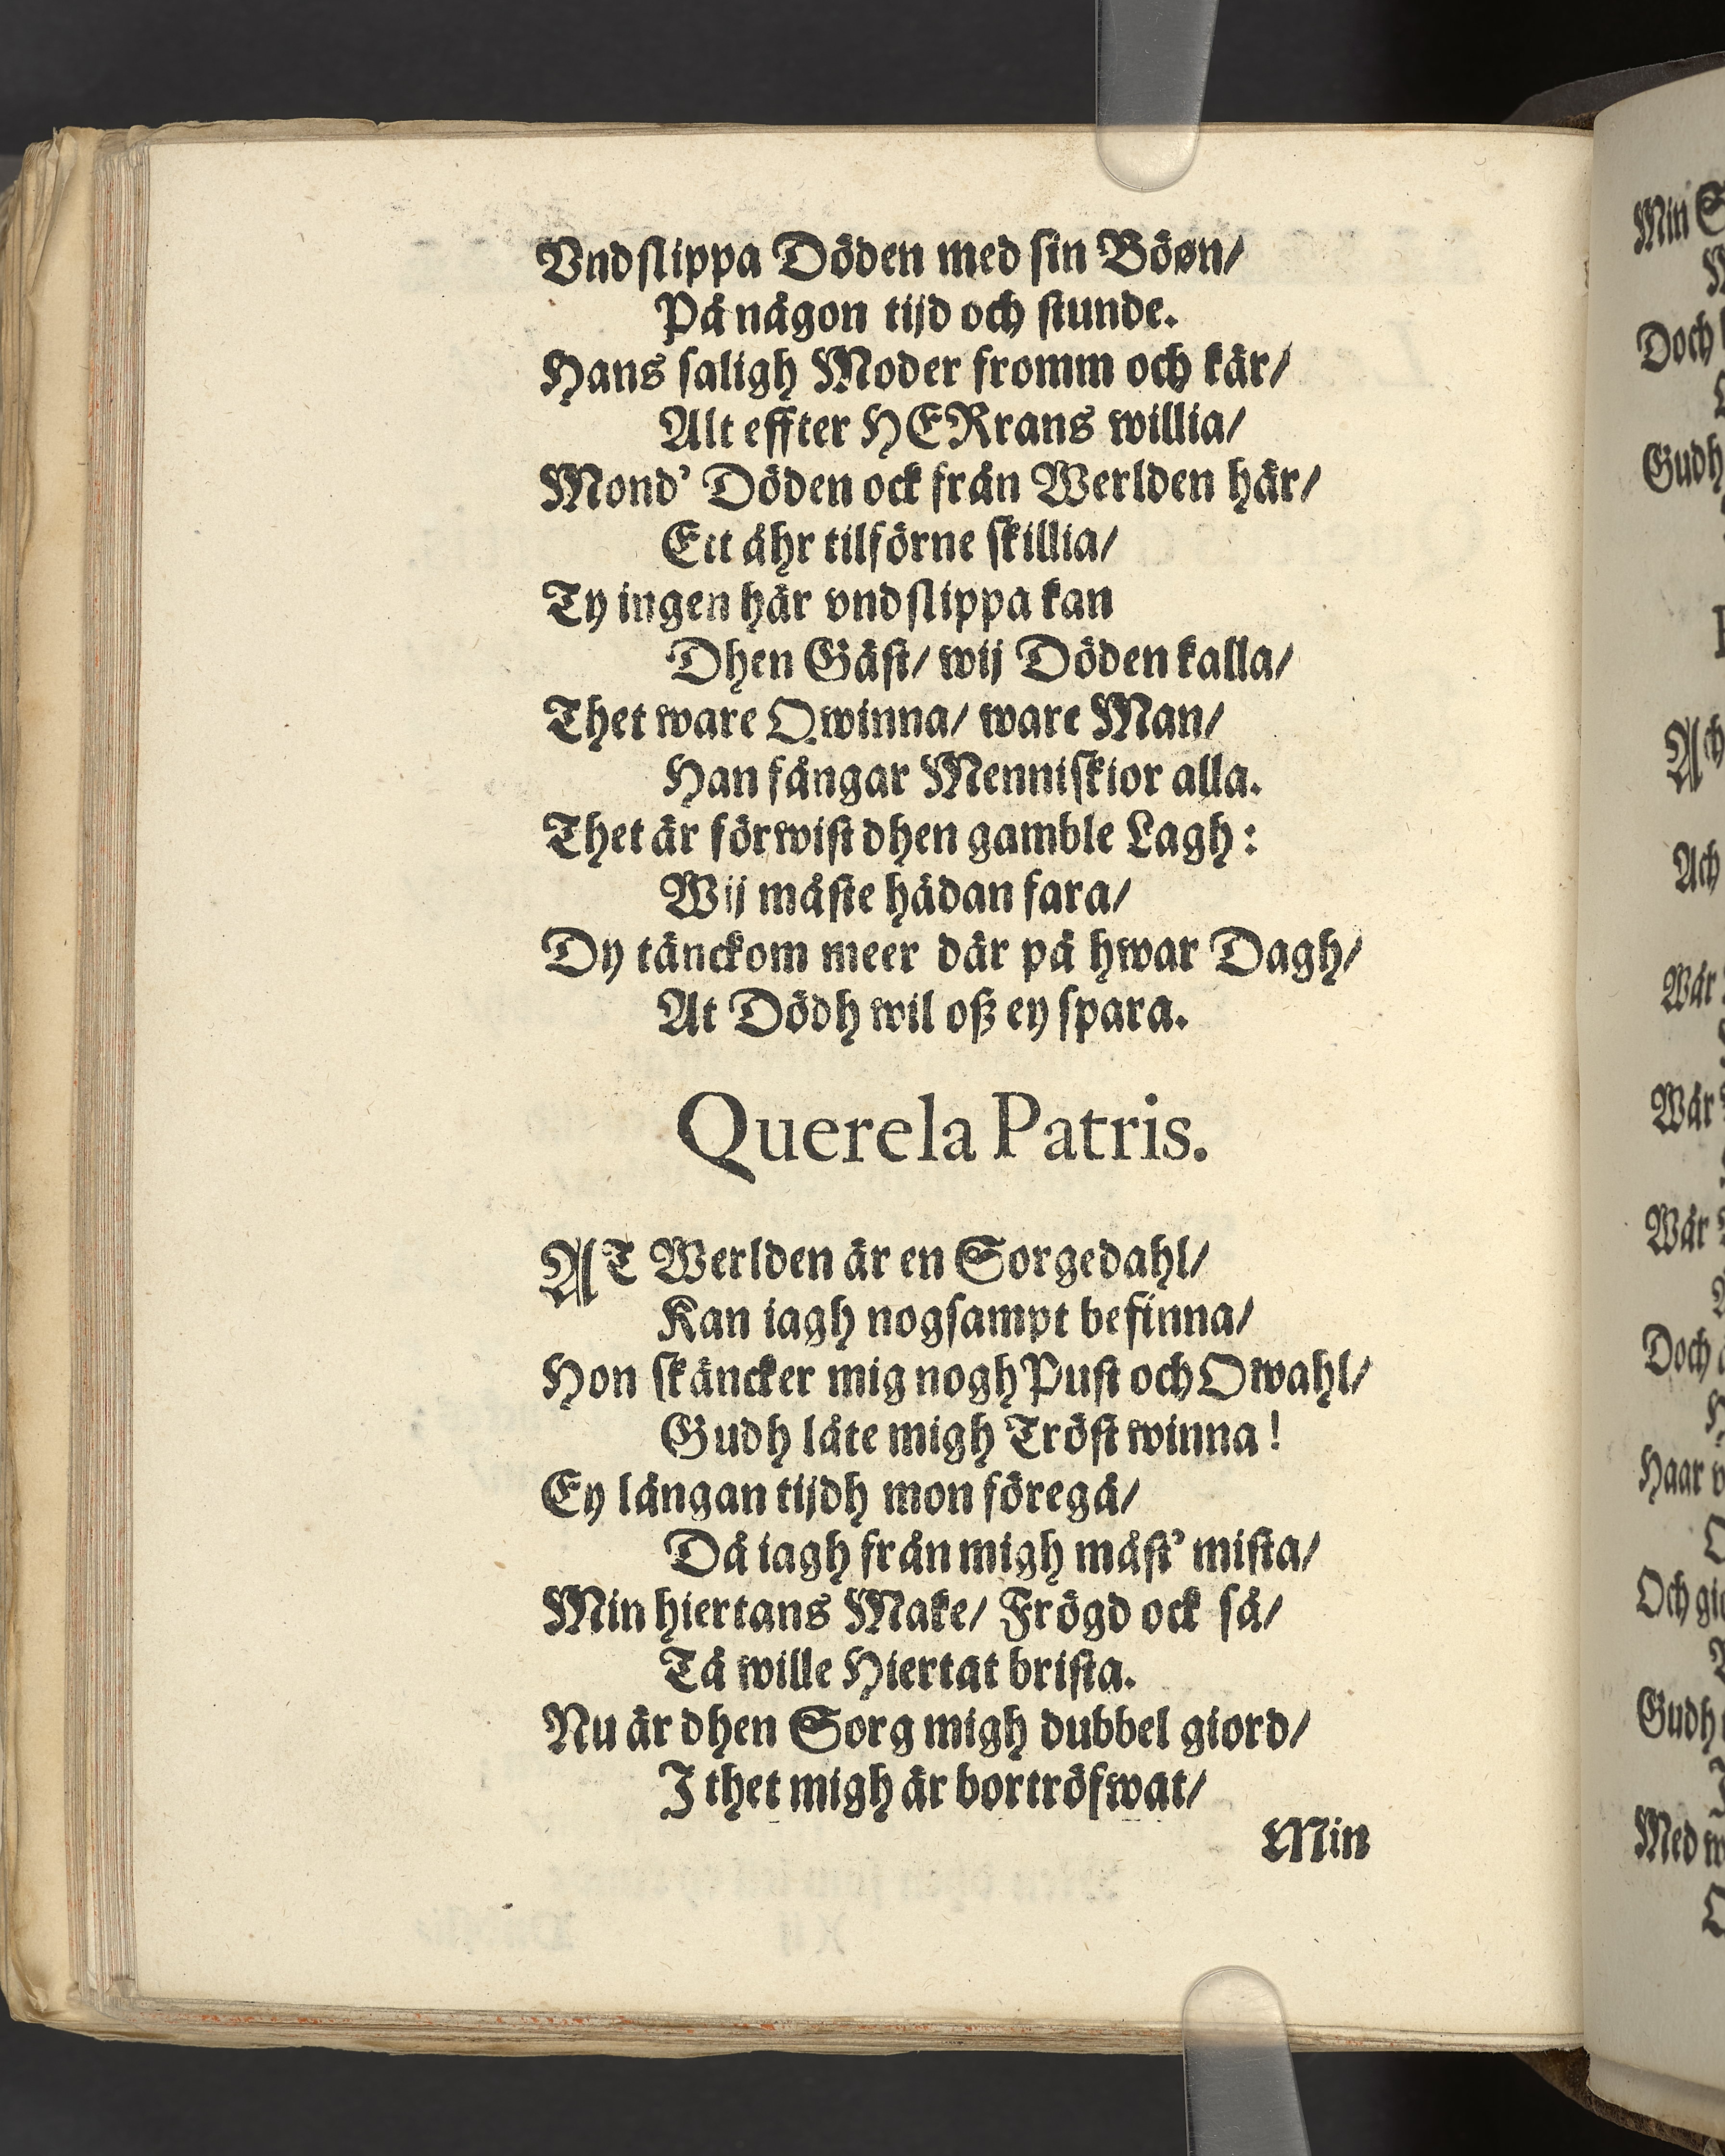 Vndſlippa Döden med ſin Böøn/
På någon tijd och ſtunde.
Hans ſaligh Moder fromm och kär/
Alt effter HERrans willia/
Mond' Döden ock från Werlden här/
Ett åhr tilförne ſkillia/
Ty ingen här vndſlippa kan
Dhen Gäſt/ wij Döden kalla/
Thet ware Qwinna/ ware Man/
Han fångar Menniſkior alla.
Thet är förwiſt dhen gamble Lagh:
Wij måſte hädan fara/
Dy tänckom meer där på hwar Dagh/
At Dödh wil oß ey ſpara.
Querela Patris.
AT Werlden är en Sorgedahl/
Kan iagh nogſampt befinna/
Hon ſkäncker mig nogh Puſt och Qwahl/
Gudh låte migh Tröſt winna!
Ey långan tijdh mon föregå/
Då iagh från migh måſt' miſta/
Min hiertans Make/ Frögd ock ſå/
Tå wille Hiertat briſta.
Nu är dhen Sorg migh dubbel giord/
I thet migh är bortröfwat/
Min
Min
Doch
Gudh
Ach
Ach
Wår
Wår
Wår
Doch
Haar
Och
Gudh
Med